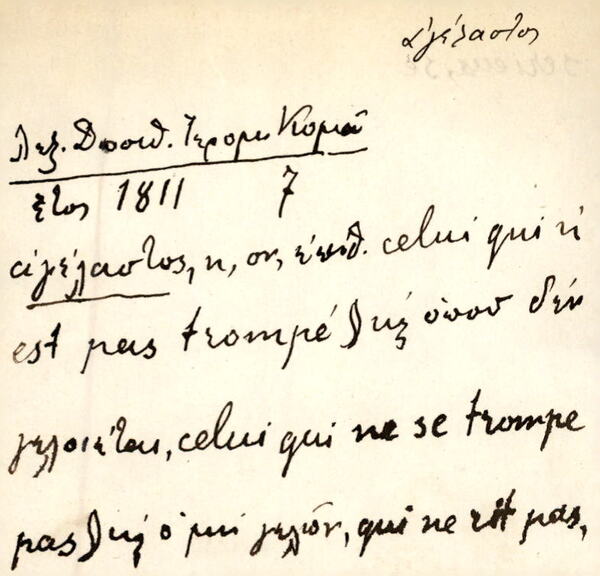 ἀγέλαστος
Λεξ. Δοσιθ. Ἱερομ. Κομᾶ
ἔτος 1811 7
ἀγέλαστος, η, ον, ἐπιθ. celui qui n'
est pas trompé ὁποῦ δέν
γελοιέται, celui qui ne se trompe
pas ὁ μή γελῶν, qui ne rit pas,